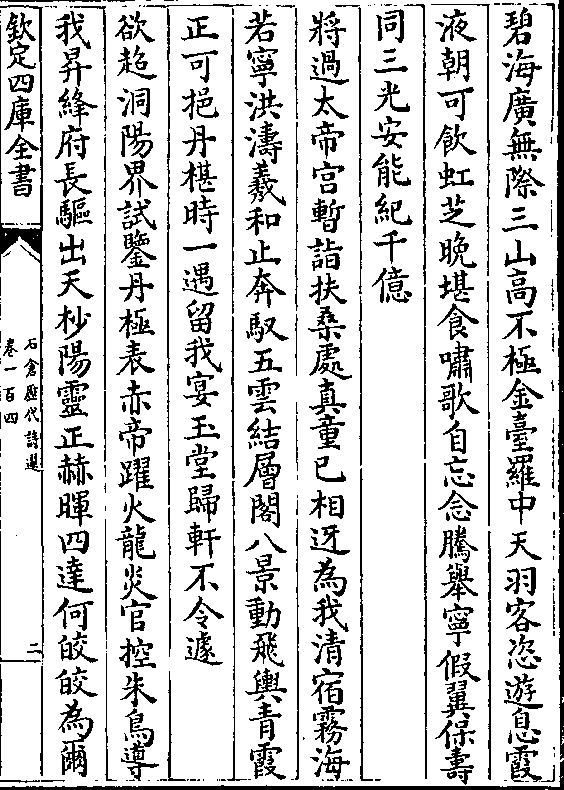 碧海廣無際三山高不極金臺羅中天羽客恣遊息霞
液朝可飲虹芝晚堪食嘯歌自忘念騰舉寧假翼保壽
同三光安能紀千億
將過太帝宮暫詣扶桑處真童已相迓為我清宿霧海
若寧洪濤羲和止奔馭五雲結層閣八景動飛輿青霞
正可挹丹椹時一遇留我宴玉堂歸軒不令遽
欲超洞陽界試鑒丹極表赤帝躍火龍炎官控朱鳥導
我昇絳府長驅出天杪陽靈正赫暉四達何皎皎為爾
欽定四庫全書
石倉歷代詩選
卷一百四
二